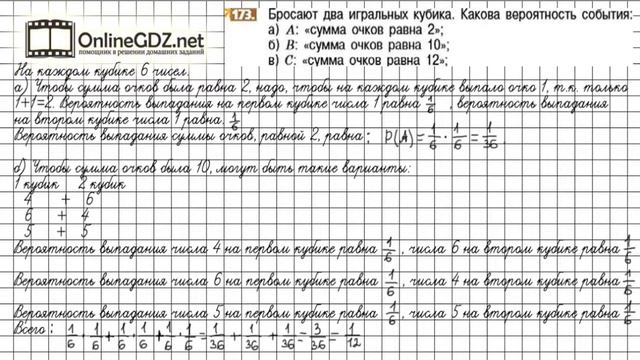 OnlineGDZ.net
помощник в решении домашних заданий
173. Бросают два игральных кубика. Какова вероятность события:
а) A: «сумма очков равна 2»;
б) B: «сумма очков равна 10»;
в) C: «сумма очков равна 12»;
На каждом кубике 6 чисел.
а) Чтобы сумма очков была равна 2, надо, чтобы на каждом кубике выпало очко 1, т.к. только
1+1=2. Вероятность выпадания на первом кубике числа 1 равна 1/6, вероятность выпадания
на втором кубике числа 1 равна 1/6
Вероятность выпадания суммы очков, равной 2, равна: P(A)=1/6·1/6=1/36
б) Чтобы сумма очков была 10, могут быть такие варианты:
1 кубик 2 кубик
4 + 6
6 + 4
5 + 5
Вероятность выпадания числа 4 на первом кубике равна 1/6, числа 6 на втором кубике равна 1/6
Вероятность выпадания числа 6 на первом кубике равна 1/6, числа 4 на втором кубике равна 1/6
Вероятность выпадания числа 5 на первом кубике равна 1/6, числа 5 на втором кубике равна 1/6
Всего: 1/6·1/6+1/6·1/6+1/6·1/6=1/36+1/36+1/36=3/36=1/12